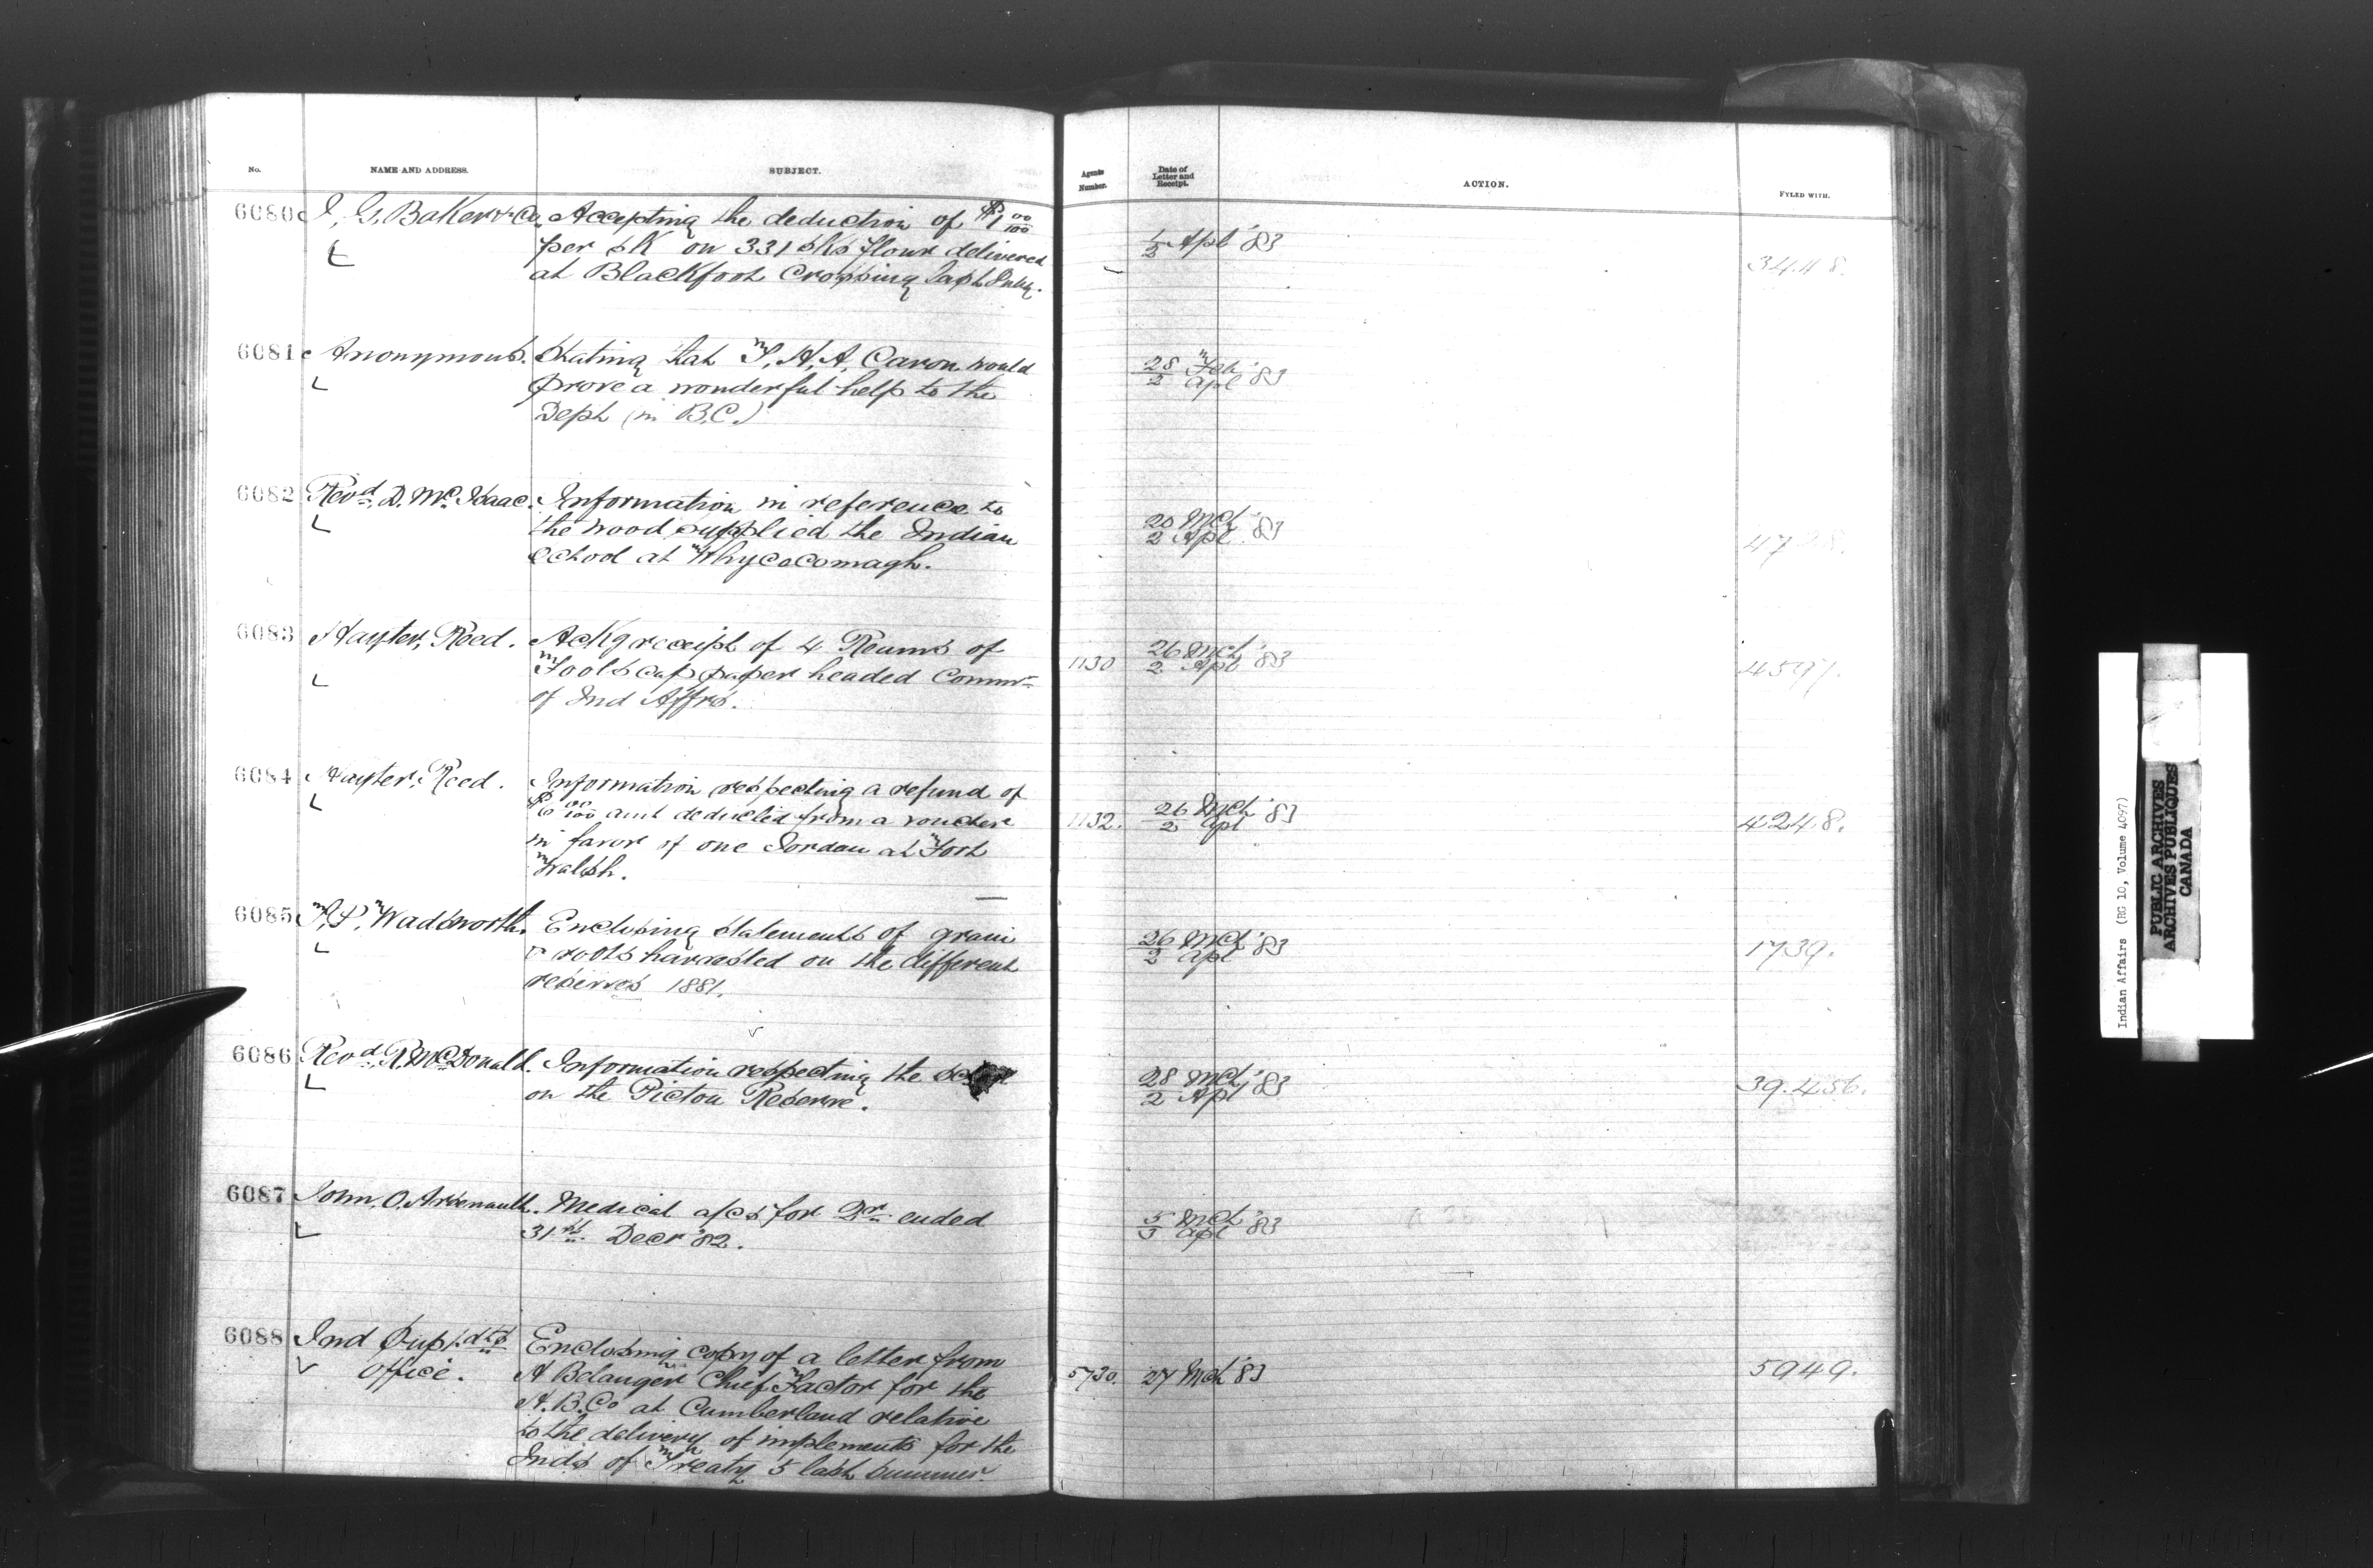 No. NAME AND ADDRESS. SUBJECT. Agents Number. Date of Letter and Receipt. ACTION. FYLED WITH.
6080 I. G. Baker & Co. Accepting the deduction of $1 00/100
per sk on 331 sks flour delivered
at Blackfoot Crossing last
2 Apl '83
3448.
6081 Anonymous. Stating that T. H. A. Caron would
prove a wonderful help to the
Dept (in B.C.)
28 Feb
2 Apl '83
6082 Revd. D. McIsaac. Information in reference to
the wood supplied the Indian
School at Whycocomagh.
20 Mch
2 Apl '83
6083 Hayter, Reed. Ackg receipt of 4 Reams of
Foolscap paper headed Commr
of Ind Affrs.
1130
26 Mch
2 Apl '83
4597.
6084 Hayter, Reed. Information respecting a refund of
$6 00/100 amt deducted from a voucher
in favor of one Jordan at Fort
Walsh.
1132.
26 Mch
2 Apl '83
4248.
6085 T. P. Wadsworth. Enclosing statements of grain
& roots harvested on the different
reserves 1881.
26 Mch
2 Apl '83
1739.
6086 Revd. R. McDonald. Information respecting the
on the Pictou Reserve.
28 Mch
2 Apl '83
39.456.
6087 John, O. Arsenault. Medical a/cs for Qr ended
31st Decr '82.
5 Mch
3 Apl '83
6088 Ind Supt.dts Office.
Enclosing copy of a letter from
A Belanger Chief Factor for the
H.B.Co at Cumberland relative
to the delivery of implements for the
Inds of Treaty 5 last Summer.
5730. 27 Mch '83
5949.
Indian Affairs (RG 10, Volume 4097)
PUBLIC ARCHIVES
ARCHIVES PUBLIQUES
CANADA